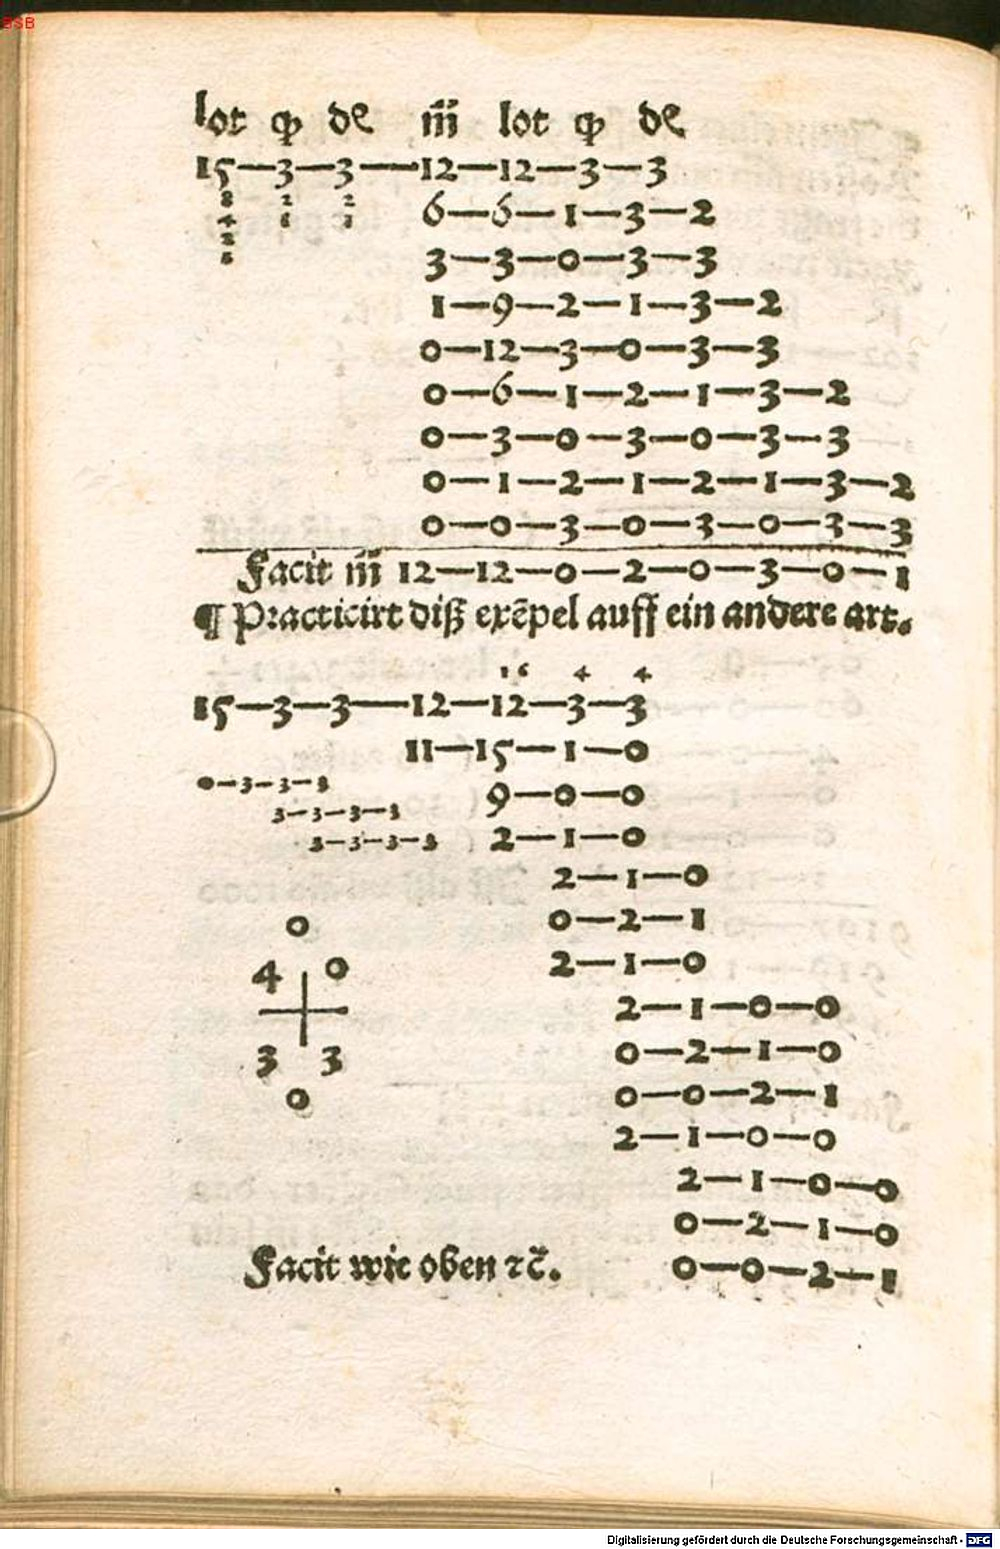 BSB
lot qͥ de m̃ lot qͥ de
15—3—3—12—12—3—3
8 2 2 6—6—1—3—2
4 1 1
2 3—3—0—3—3
1
1—9—2—1—3—2
0—12—3—0—3—3
0—6—1—2—1—3—2
0—3—0—3—0—3—3
0—1—2—1—2—1—3—2
0—0—3—0—3—0—3—3
Facit m̃ 12—12—0—2—0—3—0—1
¶ Practicirt diß exẽpel auff ein andere art.
16 4 4
15—3—3—12—12—3—3
11—15—1—0
0—3—3—3 9—0—0
3—3—3—3
3—3—3—3 2—1—0
2—1—0
0 0—2—1
4 0 2—1—0
2—1—0—0
3 3 0—2—1—0
0 0—0—2—1
2—1—0—0
2—1—0—0
0—2—1—0
Facit wie oben ꝛc̃. 0—0—2—1
Digitalisierung gefördert durch die Deutsche Forschungsgemeinschaft - DFG